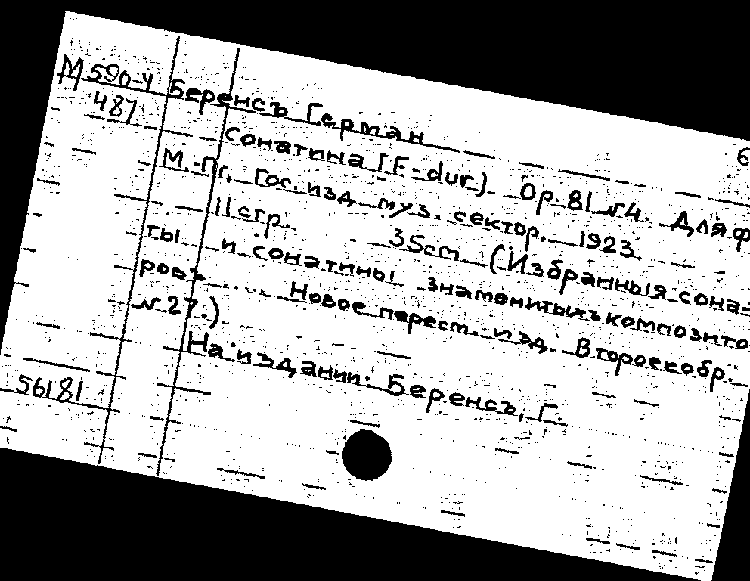 М590-4 Беренсъ Герман
487 6
сонатина [F-dur]. Op. 81 №4. Для ф
М.-Пг. Гос. изд. муз. сектор. 1923.
11 стр. 35cm (Избранныя сона-
ты и сонатины знаменитыхъ композито
ровъ.... Новое перест. изд. Второе собр.
№27.)
На издании: Беренсъ, Г.
56181